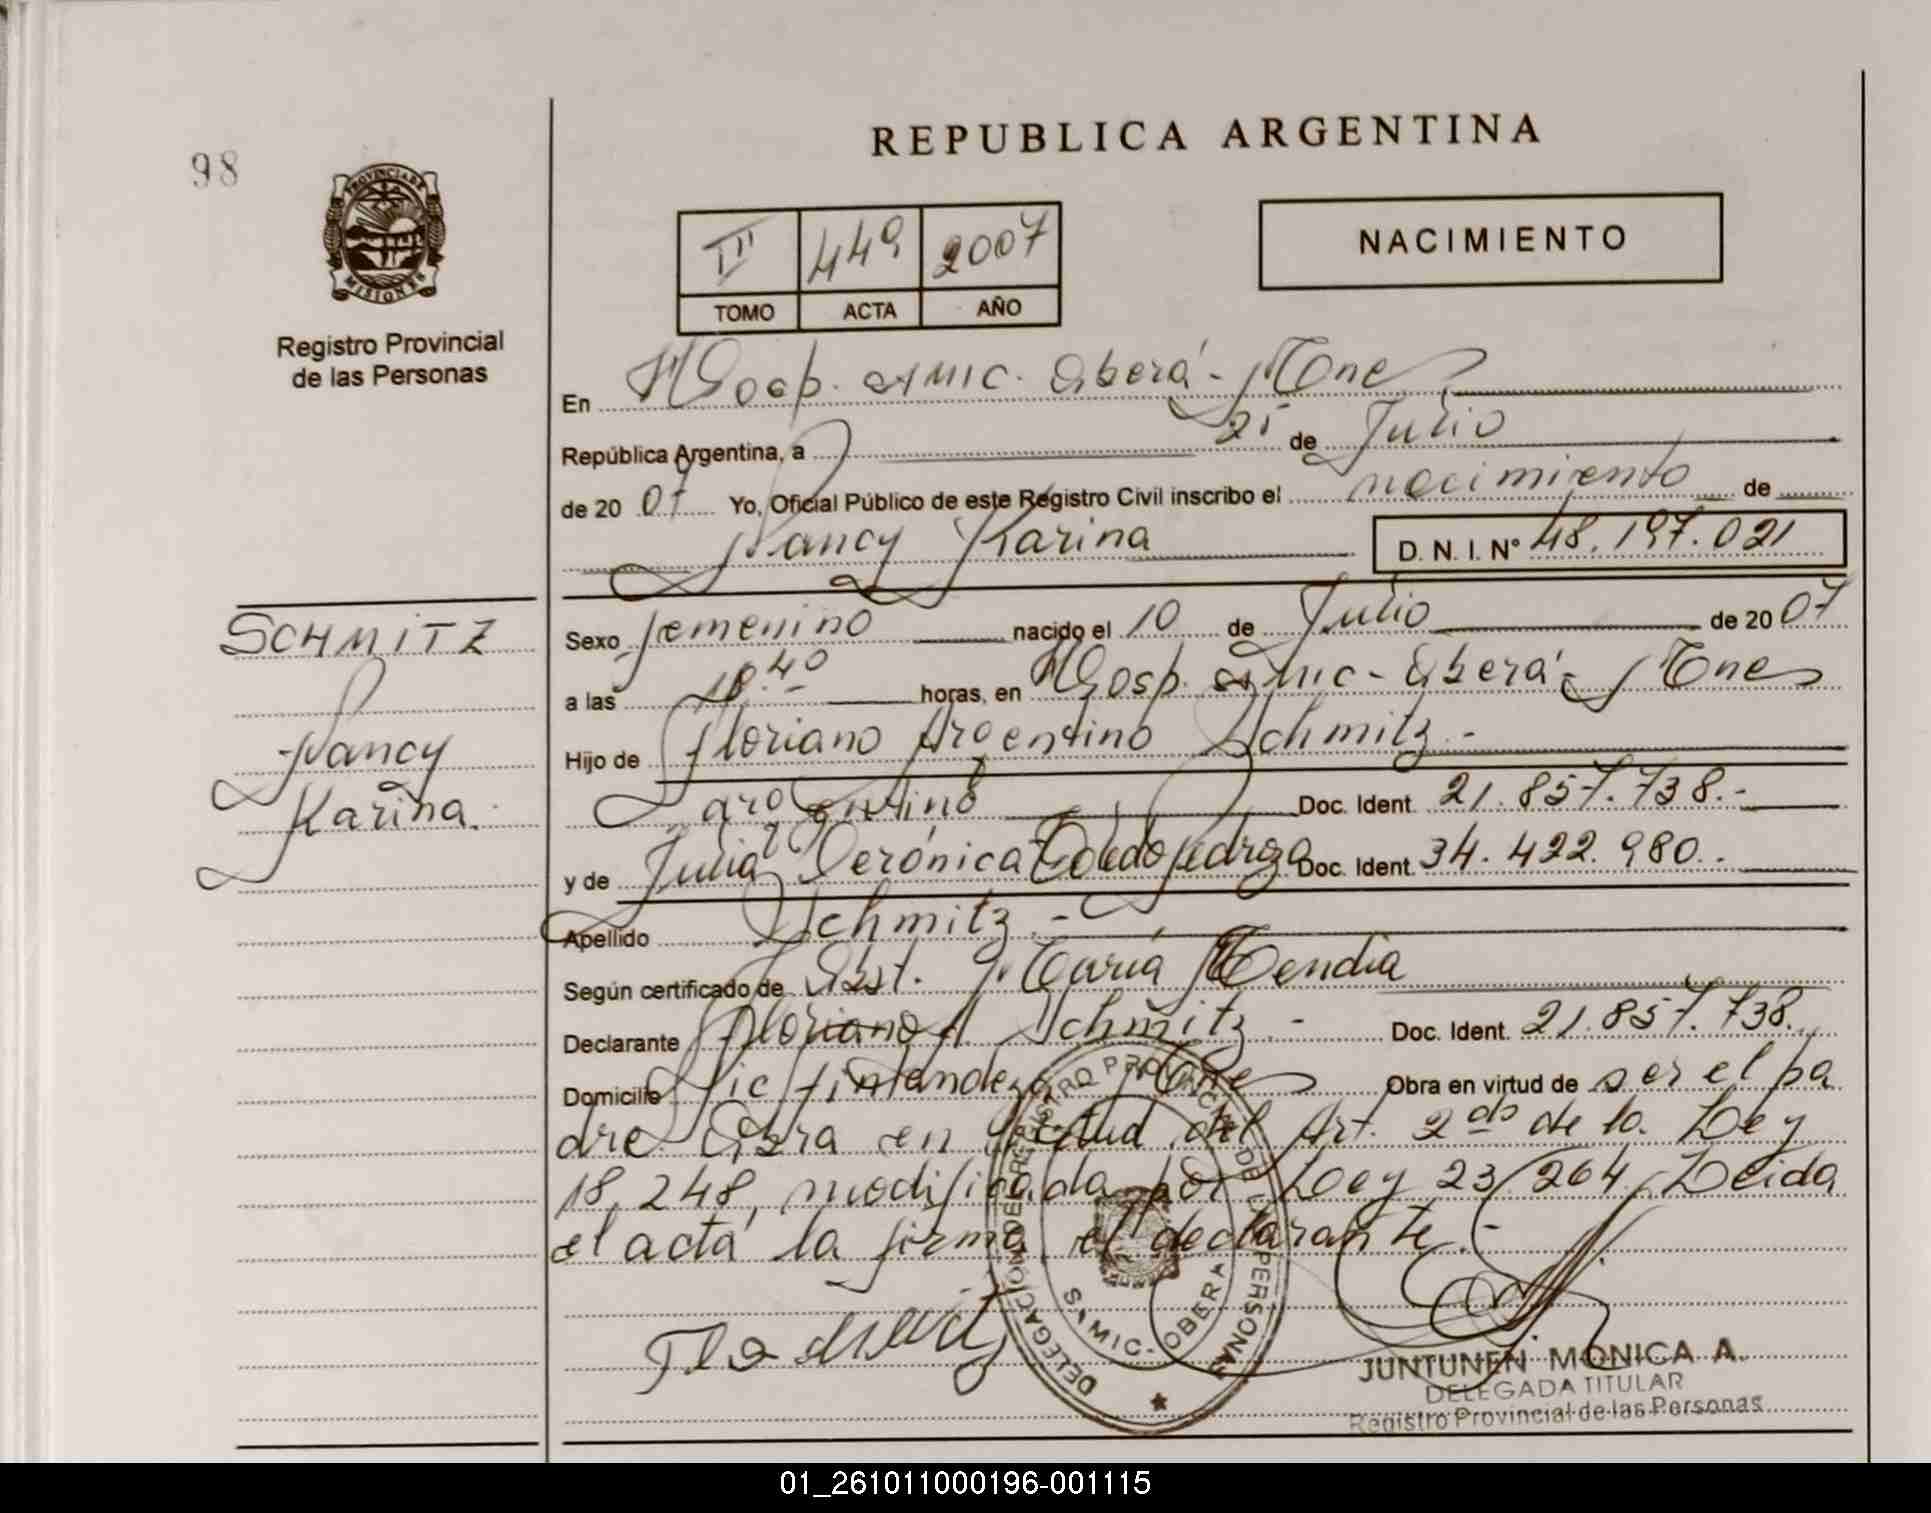 98
REPUBLICA ARGENTINA
PROVINCIA DE
MISIONES
Registro Provincial
de las Personas
III 449 2007
TOMO ACTA AÑO
NACIMIENTO
En Hosp. SAMIC. Oberá - Mnes
República Argentina, a 25 de Julio
de 20 07 Yo, Oficial Público de este Registro Civil inscribo el nacimiento de
Nancy Karina D. N. I. N° 48.197.021
SCHMITZ
Nancy
Karina.
Sexo femenino nacido el 10 de Julio de 20 07
a las horas, en Hosp. SAMIC - Oberá - Mnes
Hijo de Floriano Argentino Schmitz.-
argentino Doc. Ident. 21.857.738.-
y de Julia Verónica Toledo Pedrozo Doc. Ident. 34.422.980..
Apellido Schmitz.-
Según certificado de Obst. María Mendia
Declarante Floriano A Schmitz.- Doc. Ident. 21.857.738.
Domicilio Mnes Obra en virtud de ser el pa
dre Obra en virtud del Art. 2do de la Ley
18.248, modificada por Ley 23/264, Leida
el acta la firma el declarante.-
DELEGACION REGISTRO PROVINCIAL DE LAS PERSONAS
SAMIC-OBERA
JUNTUNEN MONICA A.
DELEGADA TITULAR
Registro Provincial de las Personas
01_261011000196-001115